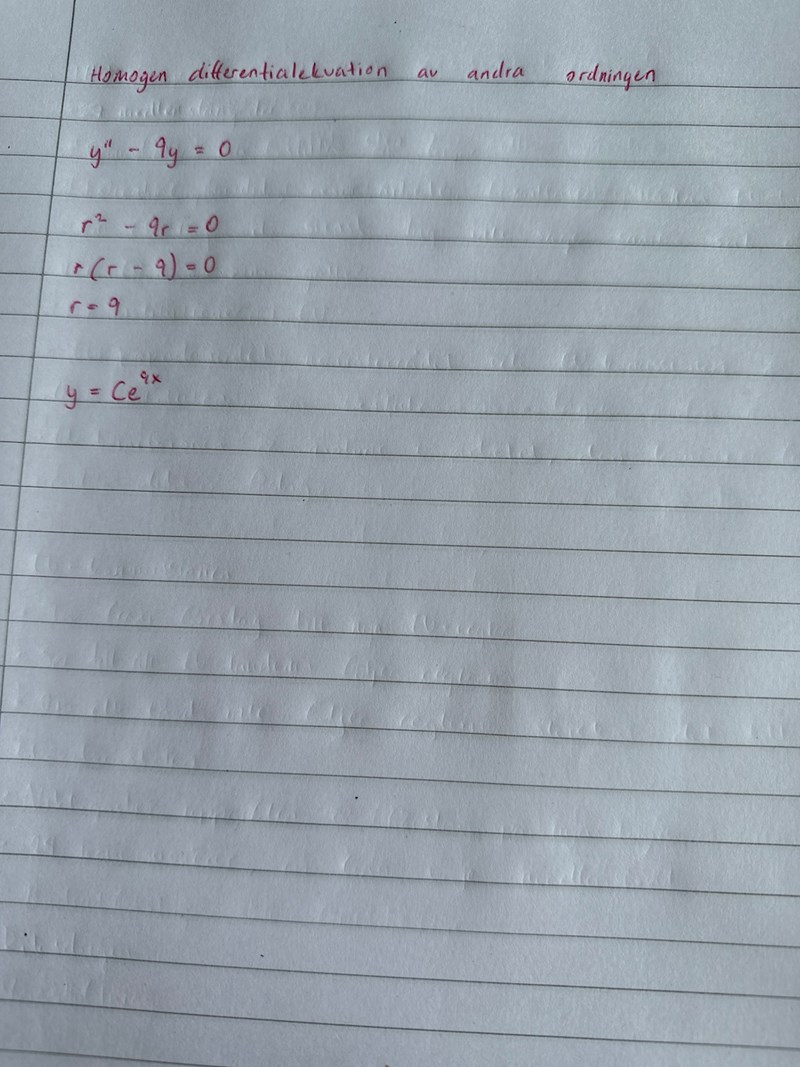 Homogen differentialekvation av andra ordningen
y'' - 9y = 0
r² - 9r = 0
r(r - 9) = 0
r = 9
y = Ce^{9x}